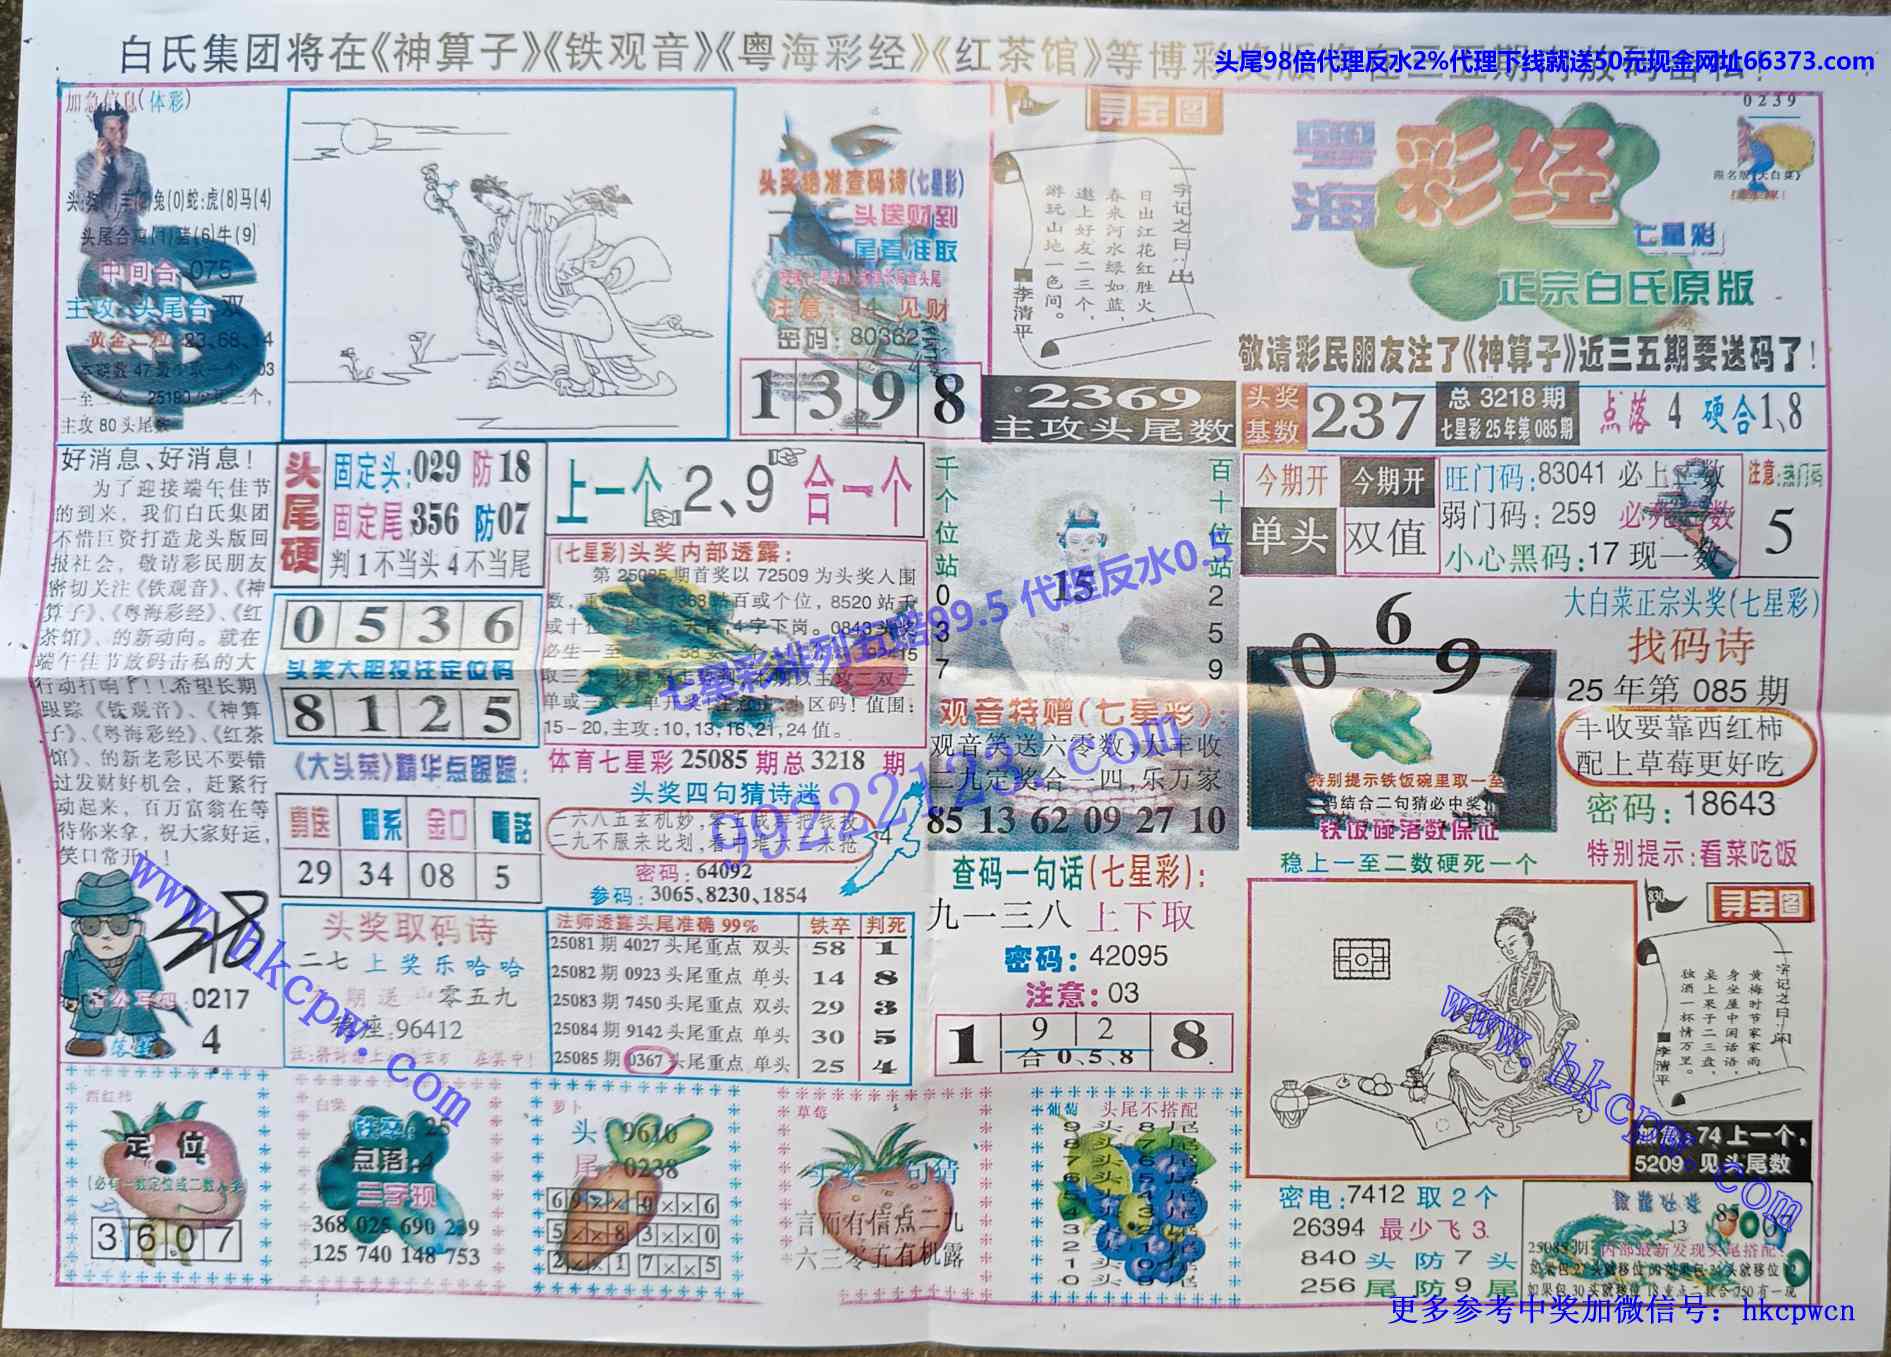 白氏集团将在《神算子》《铁观音》《粤海彩经》《红茶馆》等博彩
头尾98倍代理反水2%代理下线就送50元现金网址66373.com
加急信息(体彩)
兔(0)蛇:虎(8)马(4)
头尾合鸡(1)猪(6)牛(9)
中间合 075
主攻:头尾合 双
黄金一粒 23、68、14
主攻 80 头尾数
头奖绝准查码诗(七星彩)
斗送财到
尾看准取
注意: 14 见财
密码: 80362
1 3 9 8
寻宝图
一字记之曰:出
日出江花红胜火,
春来河水绿如蓝,
邀上好友二三个,
游玩山地一色间。
李清平
2369
主攻头尾数
0239
粤海彩经
七星彩
正宗白氏原版
敬请彩民朋友注了《神算子》近三五期要送码了!
头奖基数 237
总 3218 期
七星彩25年第085期
点落 4 硬合1、8
好消息、好消息!
为了迎接端午佳节
的到来, 我们白氏集团
不惜巨资打造龙头版回
报社会, 敬请彩民朋友
密切关注《铁观音》、《神
算子》、《粤海彩经》、《红
茶馆》、的新动向。就在
端午佳节放码击私的大
行动打响了!!希望长期
跟踪《铁观音》、《神算
子》、《粤海彩经》、《红茶
馆》、的新老彩民不要错
过发财好机会, 赶紧行
动起来, 百万富翁在等
待你来拿, 祝大家好运,
笑口常开!!
头尾硬
固定头:029 防18
固定尾 356 防07
判 1 不当头 4 不当尾
上一个 2、9 合一个
0 5 3 6
头奖大胆投注定位码
8 1 2 5
(七星彩)头奖内部透露:
第 25085 期首奖以 72509 为头奖入围
站百或个位, 8520 站千
4 字下岗。0843 头奖
15-20, 主攻: 10, 13, 16, 21, 24 值。
体育七星彩 25085 期总 3218 期
头奖四句猜诗迷
一六八五玄机妙,
二九不服来比划,
密码: 64092
参码: 3065、8230、1854
千个位站
0
3
7
百十位站
2
5
9
15
七星彩排列五赔99.5 代理反水0.5
99222123.com
观音特赠(七星彩):
观音笑送六零数, 大丰收
二九定奖合一四, 乐万家
85 13 62 09 27 10
今期开 单头
今期开 双值
旺门码: 83041 必上二数
弱门码: 259
小心黑码: 17 现一数
注意: 热门码
5
0 6 9
特别提示铁饭碗里取一至
码结合二句猜必中奖!
铁饭碗落数保证
稳上一至二数硬死一个
大白菜正宗头奖(七星彩)
找码诗
25 年第 085 期
丰收要靠西红柿
配上草莓更好吃
密码: 18643
特别提示: 看菜吃饭
《大头菜》精华点跟踪:
青送 關系 金口 電話
29 34 08 5
0217
4
头奖取码诗
二七 上 奖 乐 哈 哈
零五九
96412
法师透露头尾准确 99% 铁卒 判死
25081 期 4027 头尾重点 双头 58 1
25082 期 0923 头尾重点 单头 14 8
25083 期 7450 头尾重点 双头 29 3
25084 期 9142 头尾重点 单头 30 5
25085 期 0367 头尾重点 单头 25 4
查码一句话(七星彩):
九一三八 上下取
密码: 42095
注意: 03
1 9 2 8
合 0、5、8
830
寻宝图
一字记之曰:闲
黄梅时节家家雨,
身坐屋中闲话语,
桌上果子二三盘,
独酒一杯情万里。
李清平
74 上一个,
5209 见头尾数
西红柿
定位
3 6 0 7
白菜
铁卒: 25
点落: 4
三字现
368 025 690 239
125 740 148 753
萝卜
头 9610
尾 0238
6 9 × × 0 × × 6
5 × × 8 3 × × 0
2 × × 1 7 × × 5
草莓
头奖二句猜
言而有信点二九
六三零五有机露
葡萄
头尾不搭配
9 头 8 尾
8 头 7 尾
密电: 7412 取 2 个
26394 最少飞 3
840 头 防 7 头
256 尾 防 9 尾
13
85
25085期: 内部最新发现头尾搭配:
www.hkcpw.com
www.hkcpw.com
更多参考中奖加微信号: hkcpwcn